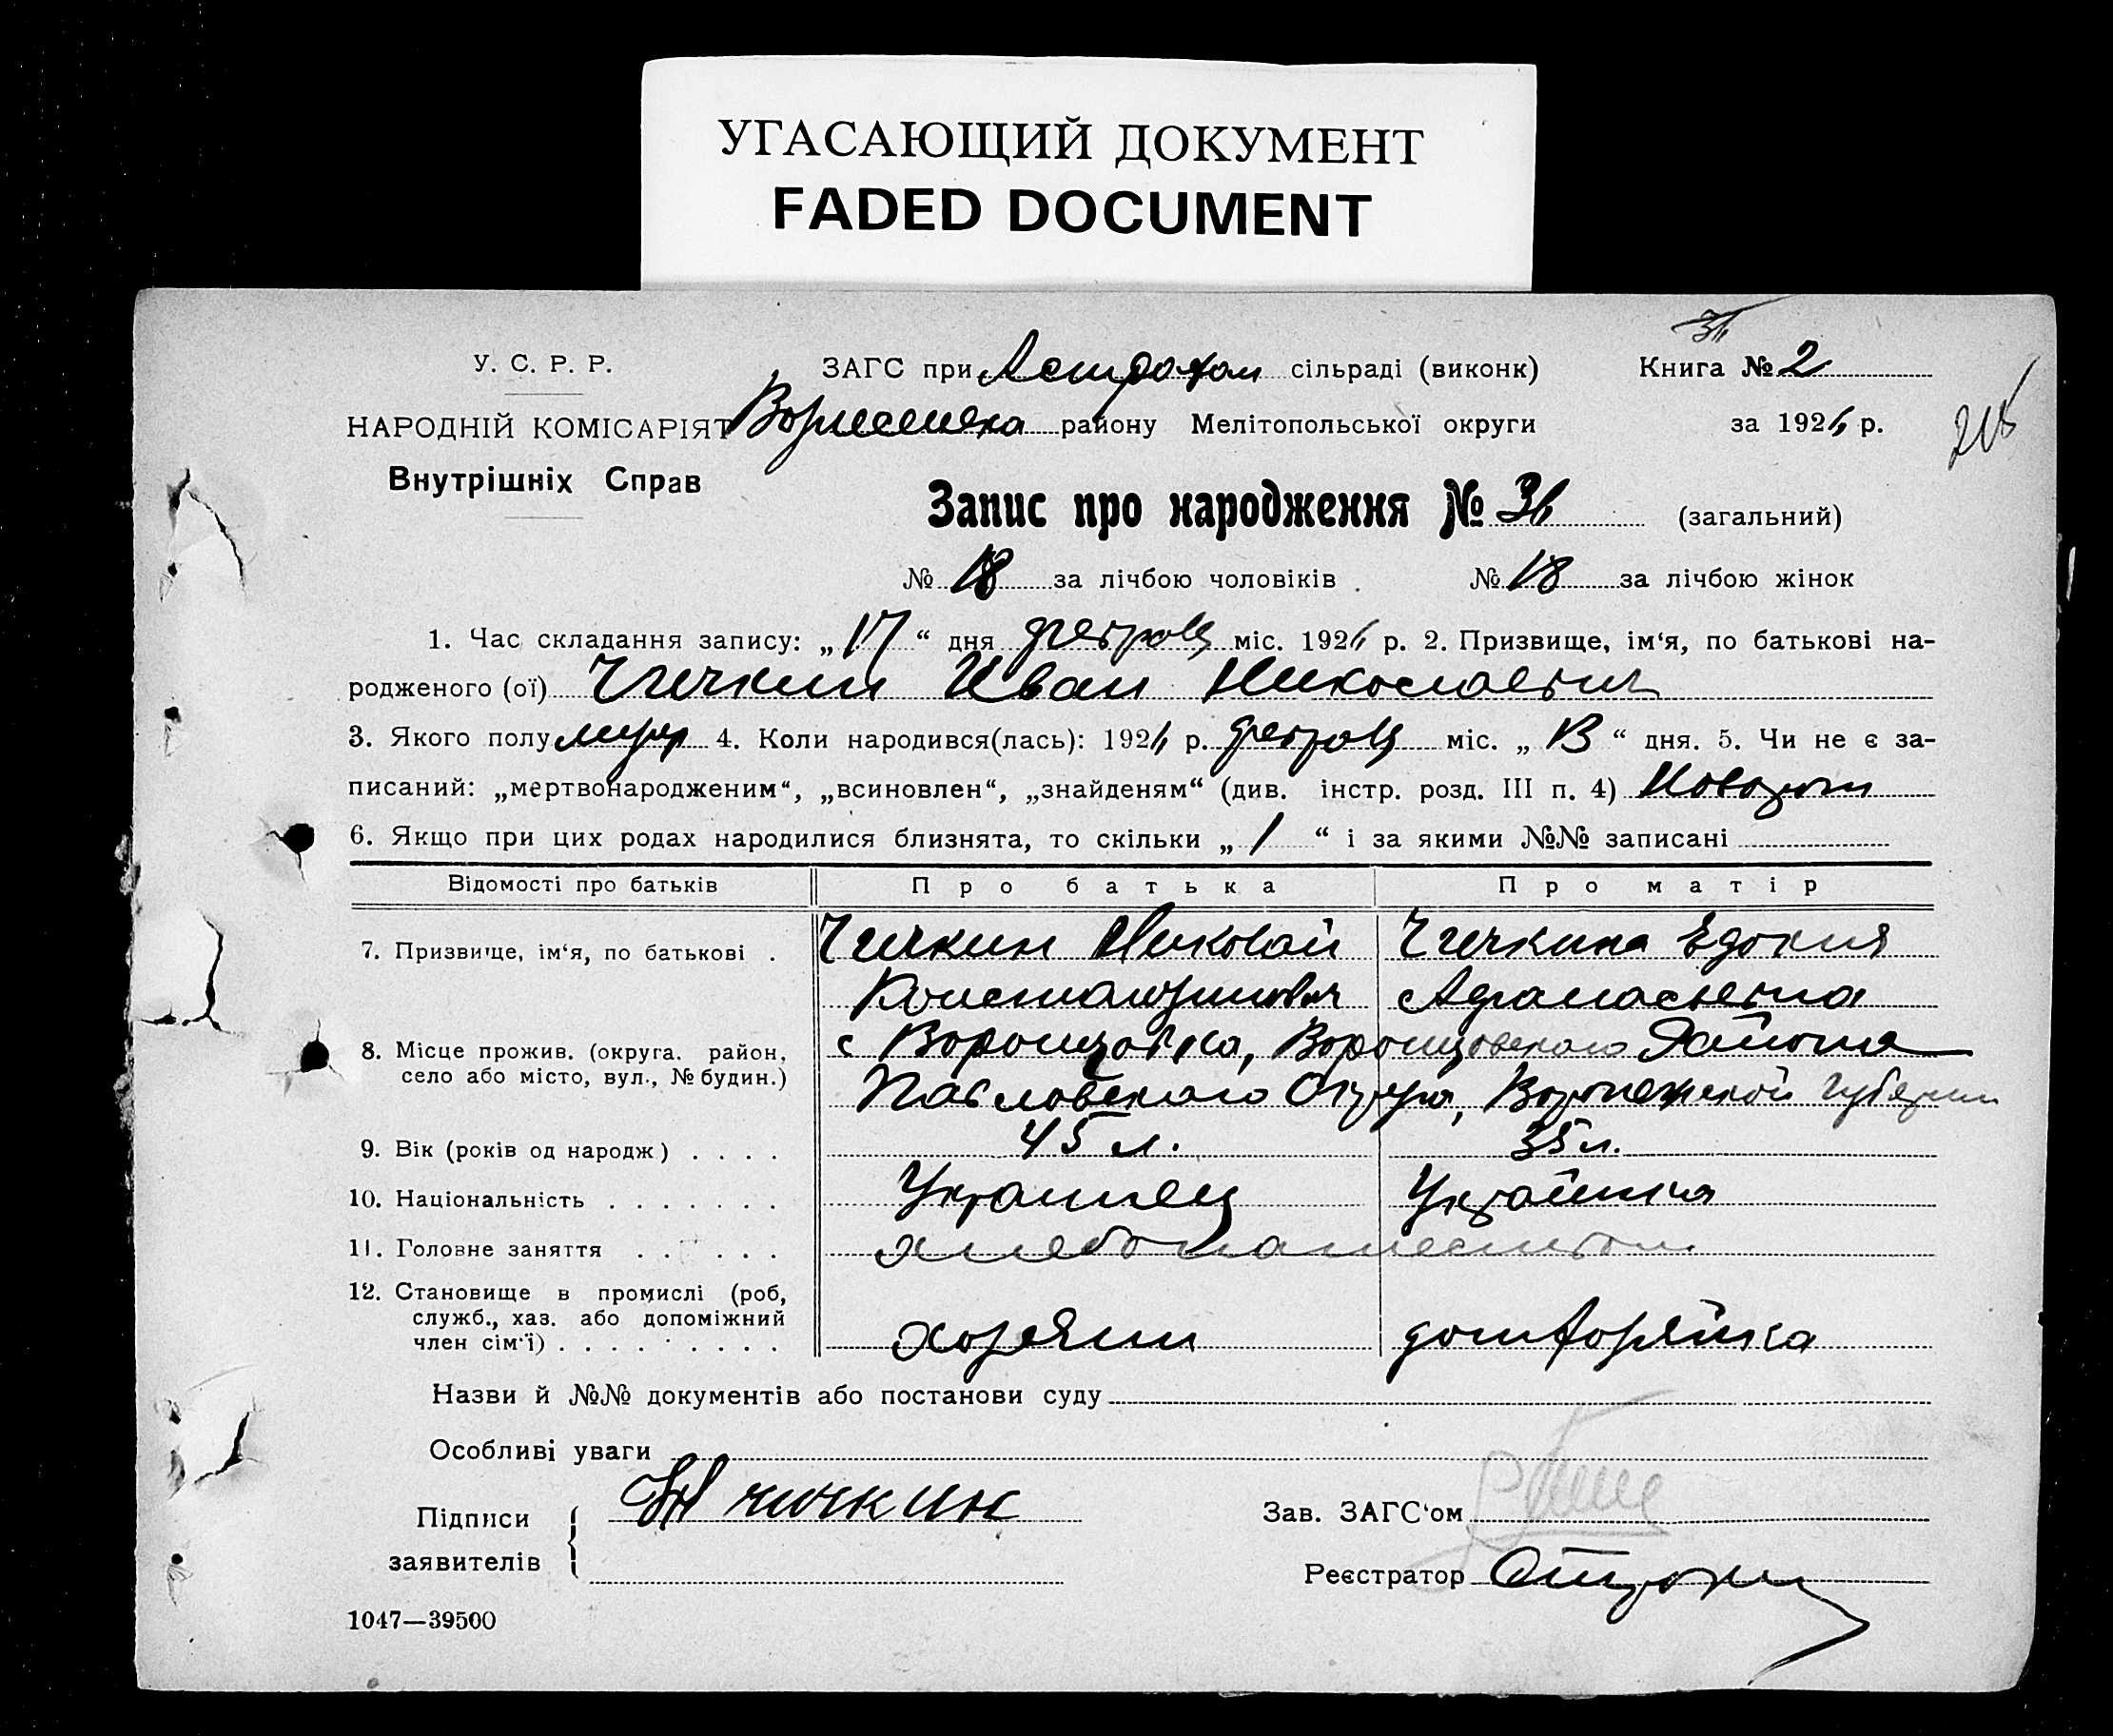 УГАСАЮЩИЙ ДОКУМЕНТ
FADED DOCUMENT
У. С. Р. Р.
НАРОДНІЙ КОМІСАРІЯТ
Внутрішніх Справ
ЗАГС при Астрахан сільраді (виконк)
района Мелітопольської округи
Книга № 2
за 1926 р.
Запис про народження № 36 (загальний)
№ 18 за лічбою чоловіків № 18 за лічбою жінок
1. Час складання запису: „ 17 “ дня февраля міс. 1926 р. 2. Призвище, ім‘я, по батькові на-
родженого (ої) Чичкин Иван Николаевич
3. Якого полу муж 4. Коли народився(лась): 1926 р. февраля міс. „ 13 “ дня. 5. Чи не є за-
писаний: „мертвонародженим“, „всиновлен“, „знайденям“ (див. інстр. розд. III п. 4)
6. Якщо при цих родах народилися близнята, то скільки „ 1 “ і за якими №№ записані
Відомості про батьків Про батька Про матір
7. Призвище, ім‘я, по батькові . Чичкин Николай Чичкина Едокия
Константинович Афанасьевна
8. Місце прожив. (округа. район, село або місто, вул., № будин.) с Воронцовка, Воронцовского Района
Павловского Округа, Воронежской Губернии
9. Вік (років од народж) . . . . 45 л. 35 л.
10. Національність . . . . . . . Украинец Украинка
11. Головне заняття . . . . . . хлебопашеством
12. Становище в промислі (роб, служб., хаз. або допоміжний член сім‘ї) . . . . . . . . . хозяин домхозяйка
Назви й №№ документів або постанови суду
Особливі уваги
Підписи заявителів Н чичкин
Зав. ЗАГС‘ом
Реєстратор
1047—39500